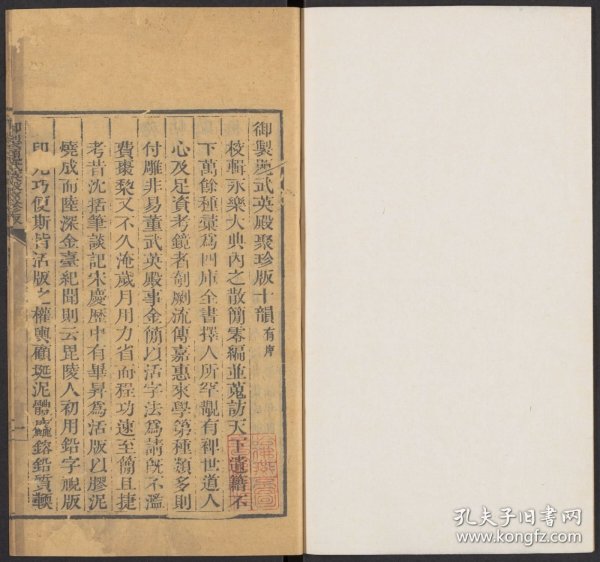 御製題武英殿聚珍版十韻有序
校輯永樂大典內之散簡零編並蒐訪天下遺籍不
下萬餘種彙為四庫全書擇人所罕覯有裨世道人
心及足資考鏡者剞劂流傳嘉惠來學第種類多則
付雕非易董武英殿事金簡以活字法為請既不濫
費棗棃又不久淹歲月用力省而程功速至簡且捷
考昔沈括筆談記宋慶歷中有畢昇為活版以膠泥
燒成而陸深金臺紀聞則云毘陵人初用鉛字視版
印尤巧便斯皆活版之權輿顧埏泥體麤鎔鉛質輭
孔夫子旧书网
www.kongfz.com